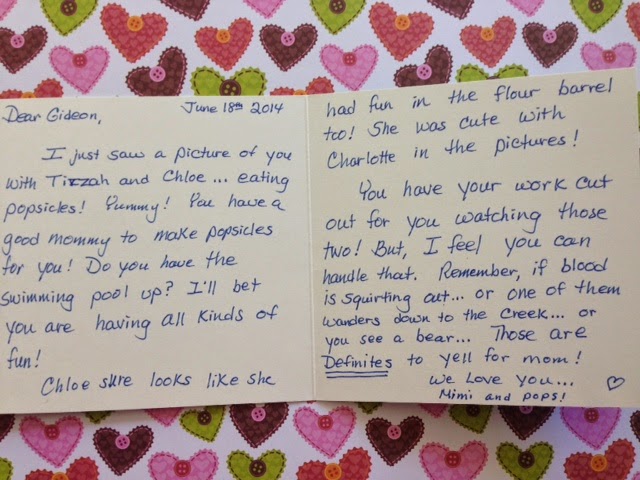 Dear Gideon,
June 18th 2014
I just saw a picture of you
with Tirzah and Chloe... eating
popsicles! Yummy! You have a
good mommy to make popsicles
for you! Do you have the
swimming pool up? I'll bet
you are having all kinds of
fun!
Chloe sure looks like she
had fun in the flour barrel
too! She was cute with
Charlotte in the pictures!
You have your work cut
out for you watching those
two! But, I feel you can
handle that. Remember, if blood
is squirting out... or one of them
wanders down to the creek... or
you see a bear... Those are
Definites to yell for mom!
We Love you...
Mimi and Pops!